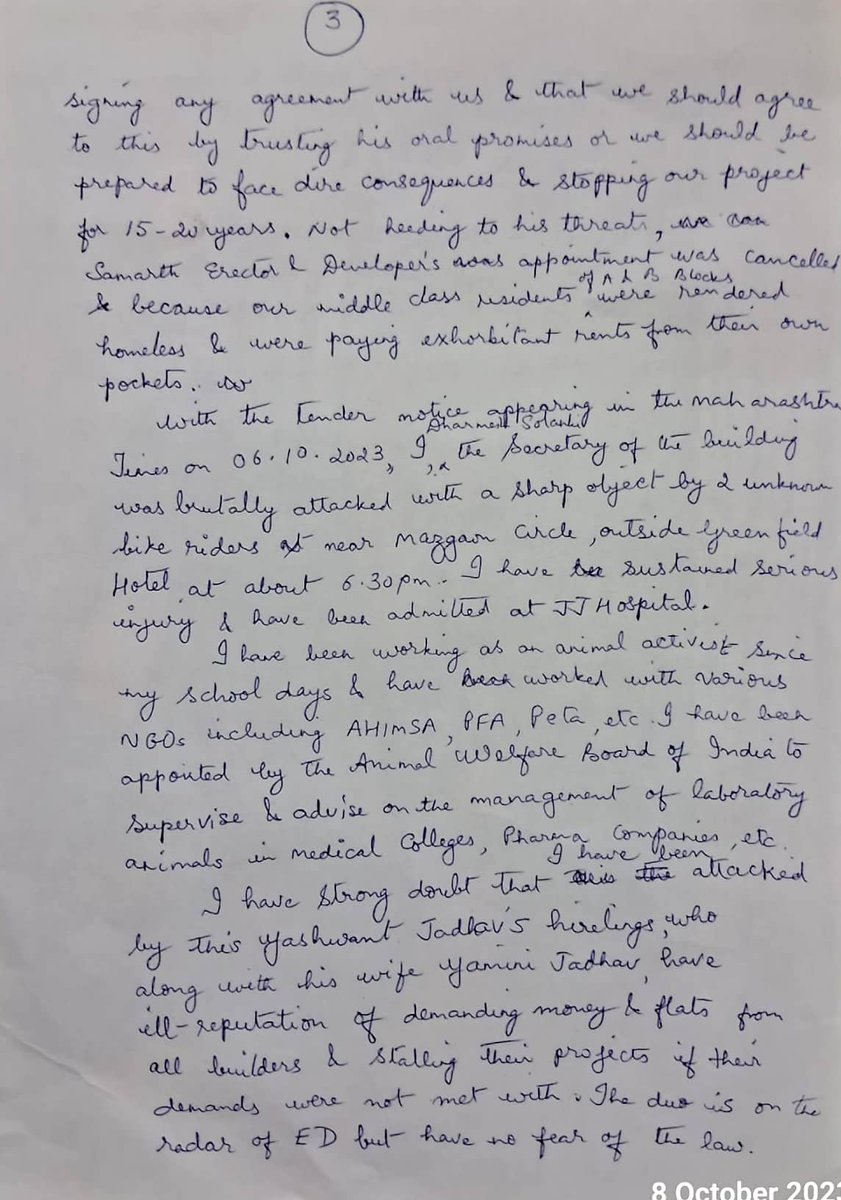 3
signing any agreement with us & that we should agree
to this by trusting his oral promises or we should be
prepared to face dire consequences & stopping our project
for 15-20 years. Not heeding to his threats,
Samarth Erector & Developer's appointment was cancelled
& because our middle class residents of A & B Blocks were rendered
homeless & were paying exhorbitant rents from their own
pockets.
With the tender notice appearing in the Maharashtra
Times on 06.10.2023, I, Dharmesh Solanki, the Secretary of the building
was brutally attacked with a sharp object by 2 unknown
bike riders near Mazgaon Circle, outside Greenfield
Hotel at about 6.30pm. I have sustained serious
injury & have been admitted at JJ Hospital.
I have been working as an animal activist since
my school days & have worked with various
NGOs including AHIMSA, PFA, Peta, etc. I have been
appointed by the Animal Welfare Board of India to
supervise & advise on the management of laboratory
animals in medical Colleges, Pharma Companies, etc.
I have strong doubt that I have been attacked
by this Yashwant Jadhav's hirelings, who
along with his wife Yamini Jadhav, have
ill-reputation of demanding money & flats from
all builders & stalling their projects if their
demands were not met with. The duo is on the
radar of ED but have no fear of the law.
8 October 2023